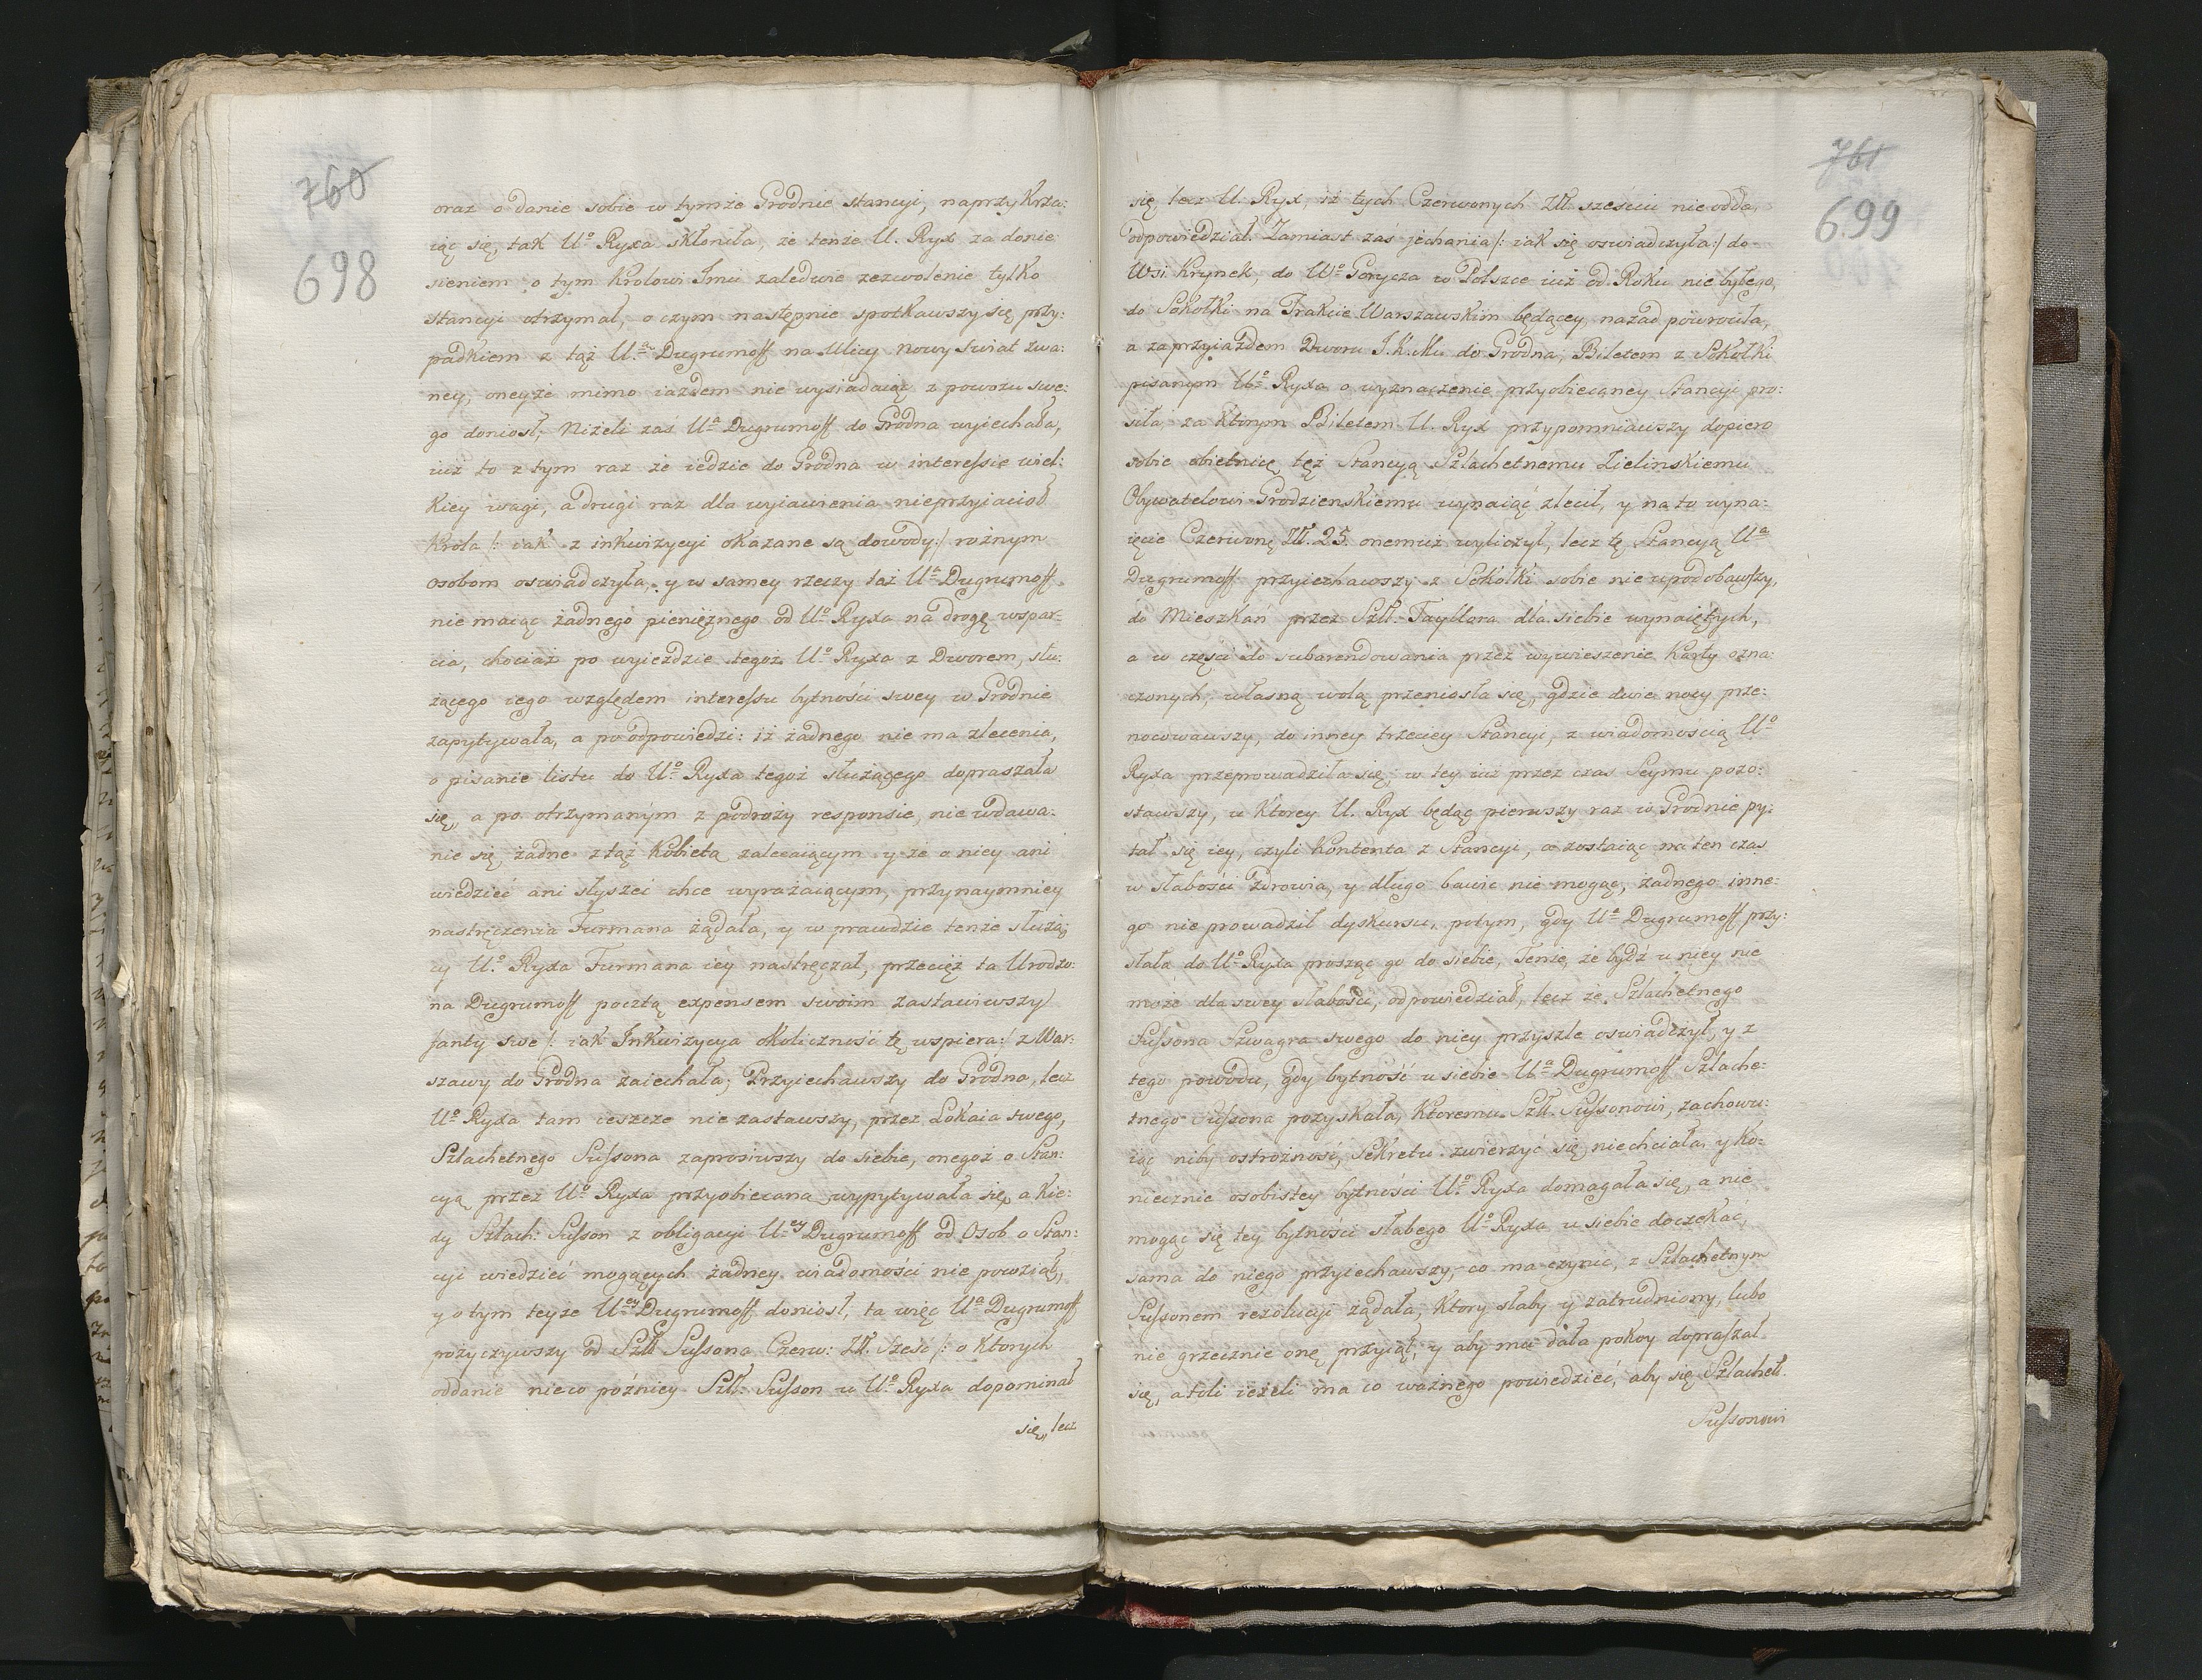 760
698
oraz o danie sobie w tymże Grodnie stancyi, naprzykrza:
iąc się, tak Uo Ryxa skłoniła, że tenże U. Ryx za donie
sieniem o tym Krolowi Jmci zaledwie zezwolenie tylko
stancyi otrzymał, o czym następnie spotkawszy się przy:
padkiem z tąż U.ą Dugrumoff na Ulicy Nowy Swiat zwa:
ney, oneyże mimo iazdem nie wysiadaiąc z powozu swe:
go doniosł; Niżeli zaś Ua Dugrumoff do Grodna wyiechała,
iuż to z tym raz że iedzie do Grodna w interessie wiel:
kiey wagi, a drugi raz dla wyiawienia nieprzyiacioł
Krola /: iak z inkwizycyi okazane są dowody:/ rożnym
osobom oswiadczyła, y w samey rzeczy taż Ua Dugrumoff
nie maiąc żadnego pieniężnego od Uo Ryxa na drogę wspar:
cia, chociaż po wyieździe tegoż Uo Ryxa z Dworem, słu:
żącego iego względem interessu bytności swey w Grodnie
zapytywała, a po odpowiedzi: iż żadnego nie ma zlecenia,
o pisanie listu do Uo Ryxa tegoż służącego dopraszała
się, a po otrzymanym z podroży responsie, nie wdawa:
nie się żadne z tąż Kobietą zalecaiącym y że o niey ani
wiedzieć ani słyszeć chce wyrażaiącym, przynaymniey
nastręczenia Furmana żądała, y w prawdzie tenże służą:
cy U.o Ryxa Furmana iey nastręczał, przecięż ta Urodzo:
na Dugrumoff pocztą expensem swoim zastawiwszy
fanty swe /: iak Inkwizycya okoliczność tę wspiera:/ z War:
szawy do Grodna zaiechała; Przyiechawszy do Grodna, lecz
Uo Ryxa tam ieszcze nie zastawszy, przez Lokaia swego,
Szlachetnego Sussona zaprosiwszy do siebie, onegoż o Stan:
cyą przez Uo Ryxa przyobiecaną wypytywała się, a kie:
dy Szlach: Susson z obligacyi U.ey Dugrumoff od Osob o Stan:
cyi wiedzieć mogących żadney wiadomości nie powziął,
y o tym teyże Uey Dugrumoff doniosł, ta więc Ua Dugrumoff
pożyczywszy od Szll Sussona Czerw: Zll. sześć /: o ktorych
oddanie nieco pożniey Szll. Susson u Uo Ryxa dopominał
się, lecz
761
699
się, lecz U. Ryx, iż tych Czerwonych Zll. sześciu nie odda,
odpowiedział. Zamiast zaś jechania /: iak się oswiadczyła:/ do
Wsi Krynek, do Wo Gorycza w Polszce iuż od Roku nie byłego,
do Sokołki na Trakcie Warszawskim będącey, nazad powrociła,
a za przyiazdem Dworu J.K.Mci do Grodna, Biletem z Sokołki
pisanym Uo Ryxa o wyznaczenie przyobiecaney Stancyi pro:
siła, za ktorym Biletem U. Ryx przypomniawszy dopiero
sobie obietnicę tęż Stancyą Szlachetnemu Zielinskiemu
Obywatelowi Grodzienskiemu wynaiąć zlecił, y na to wyna:
ięcie Czerwonę Zll. 25. onemuż wyliczył, lecz tę Stancyą Ua
Dugrumoff przyiechawszy z Sokołki sobie nie upodobawszy,
do Mieszkań przez Szll. Tayllora dla siebie wynaiętych,
a w części do subarendowania przez wywieszenie karty ozna:
czonych, własną wolą przeniosła się, gdzie dwie nocy prze:
nocowawszy, do inney trzeciey Stancyi, z wiadomością Uo
Ryxa przeprowadziła się, w tey iuż przez czas Seymu pozo:
stawszy, u ktorey U. Ryx będąc pierwszy raz w Grodnie py:
tał się iey, czyli kontenta z Stancyi, a zostaiąc na ten czas
w słabości zdrowia, y długo bawić nie mogąc, żadnego inne:
go nie prowadził dyskursu, potym, gdy Ua Dugrumoff przy:
słała do Uo Ryxa prosząc go do siebie, Tenże, że bydź u niey nie
może dla swey słabości, odpowiedział, lecz że Szlachetnego
Sussona Szwagra swego do niey przyszle oswiadczył, y z
tego powodu, gdy bytność u siebie Ua Dugrumoff Szlache:
tnego Sussona pozyskała, ktoremu Szll. Sussonowi, zachowu:
iąc niby ostrożność, Sekretu zwierzyć się niechciała, y ko:
niecznie osobistey bytności Uo Ryxa domagała się, a nie
mogąc się tey bytności słabego Uo Ryxa u siebie doczekać,
sama do niego przyiechawszy, co ma czynić, z Szlachetnym
Sussonem rezolucyi żądała, ktory słaby y zatrudniony, lubo
nie grzecznie onę przyiął, y aby mu dała pokoy dopraszał
się, atoli ieżeli ma co ważnego powiedzieć, aby się Szlachet.
Sussonowi